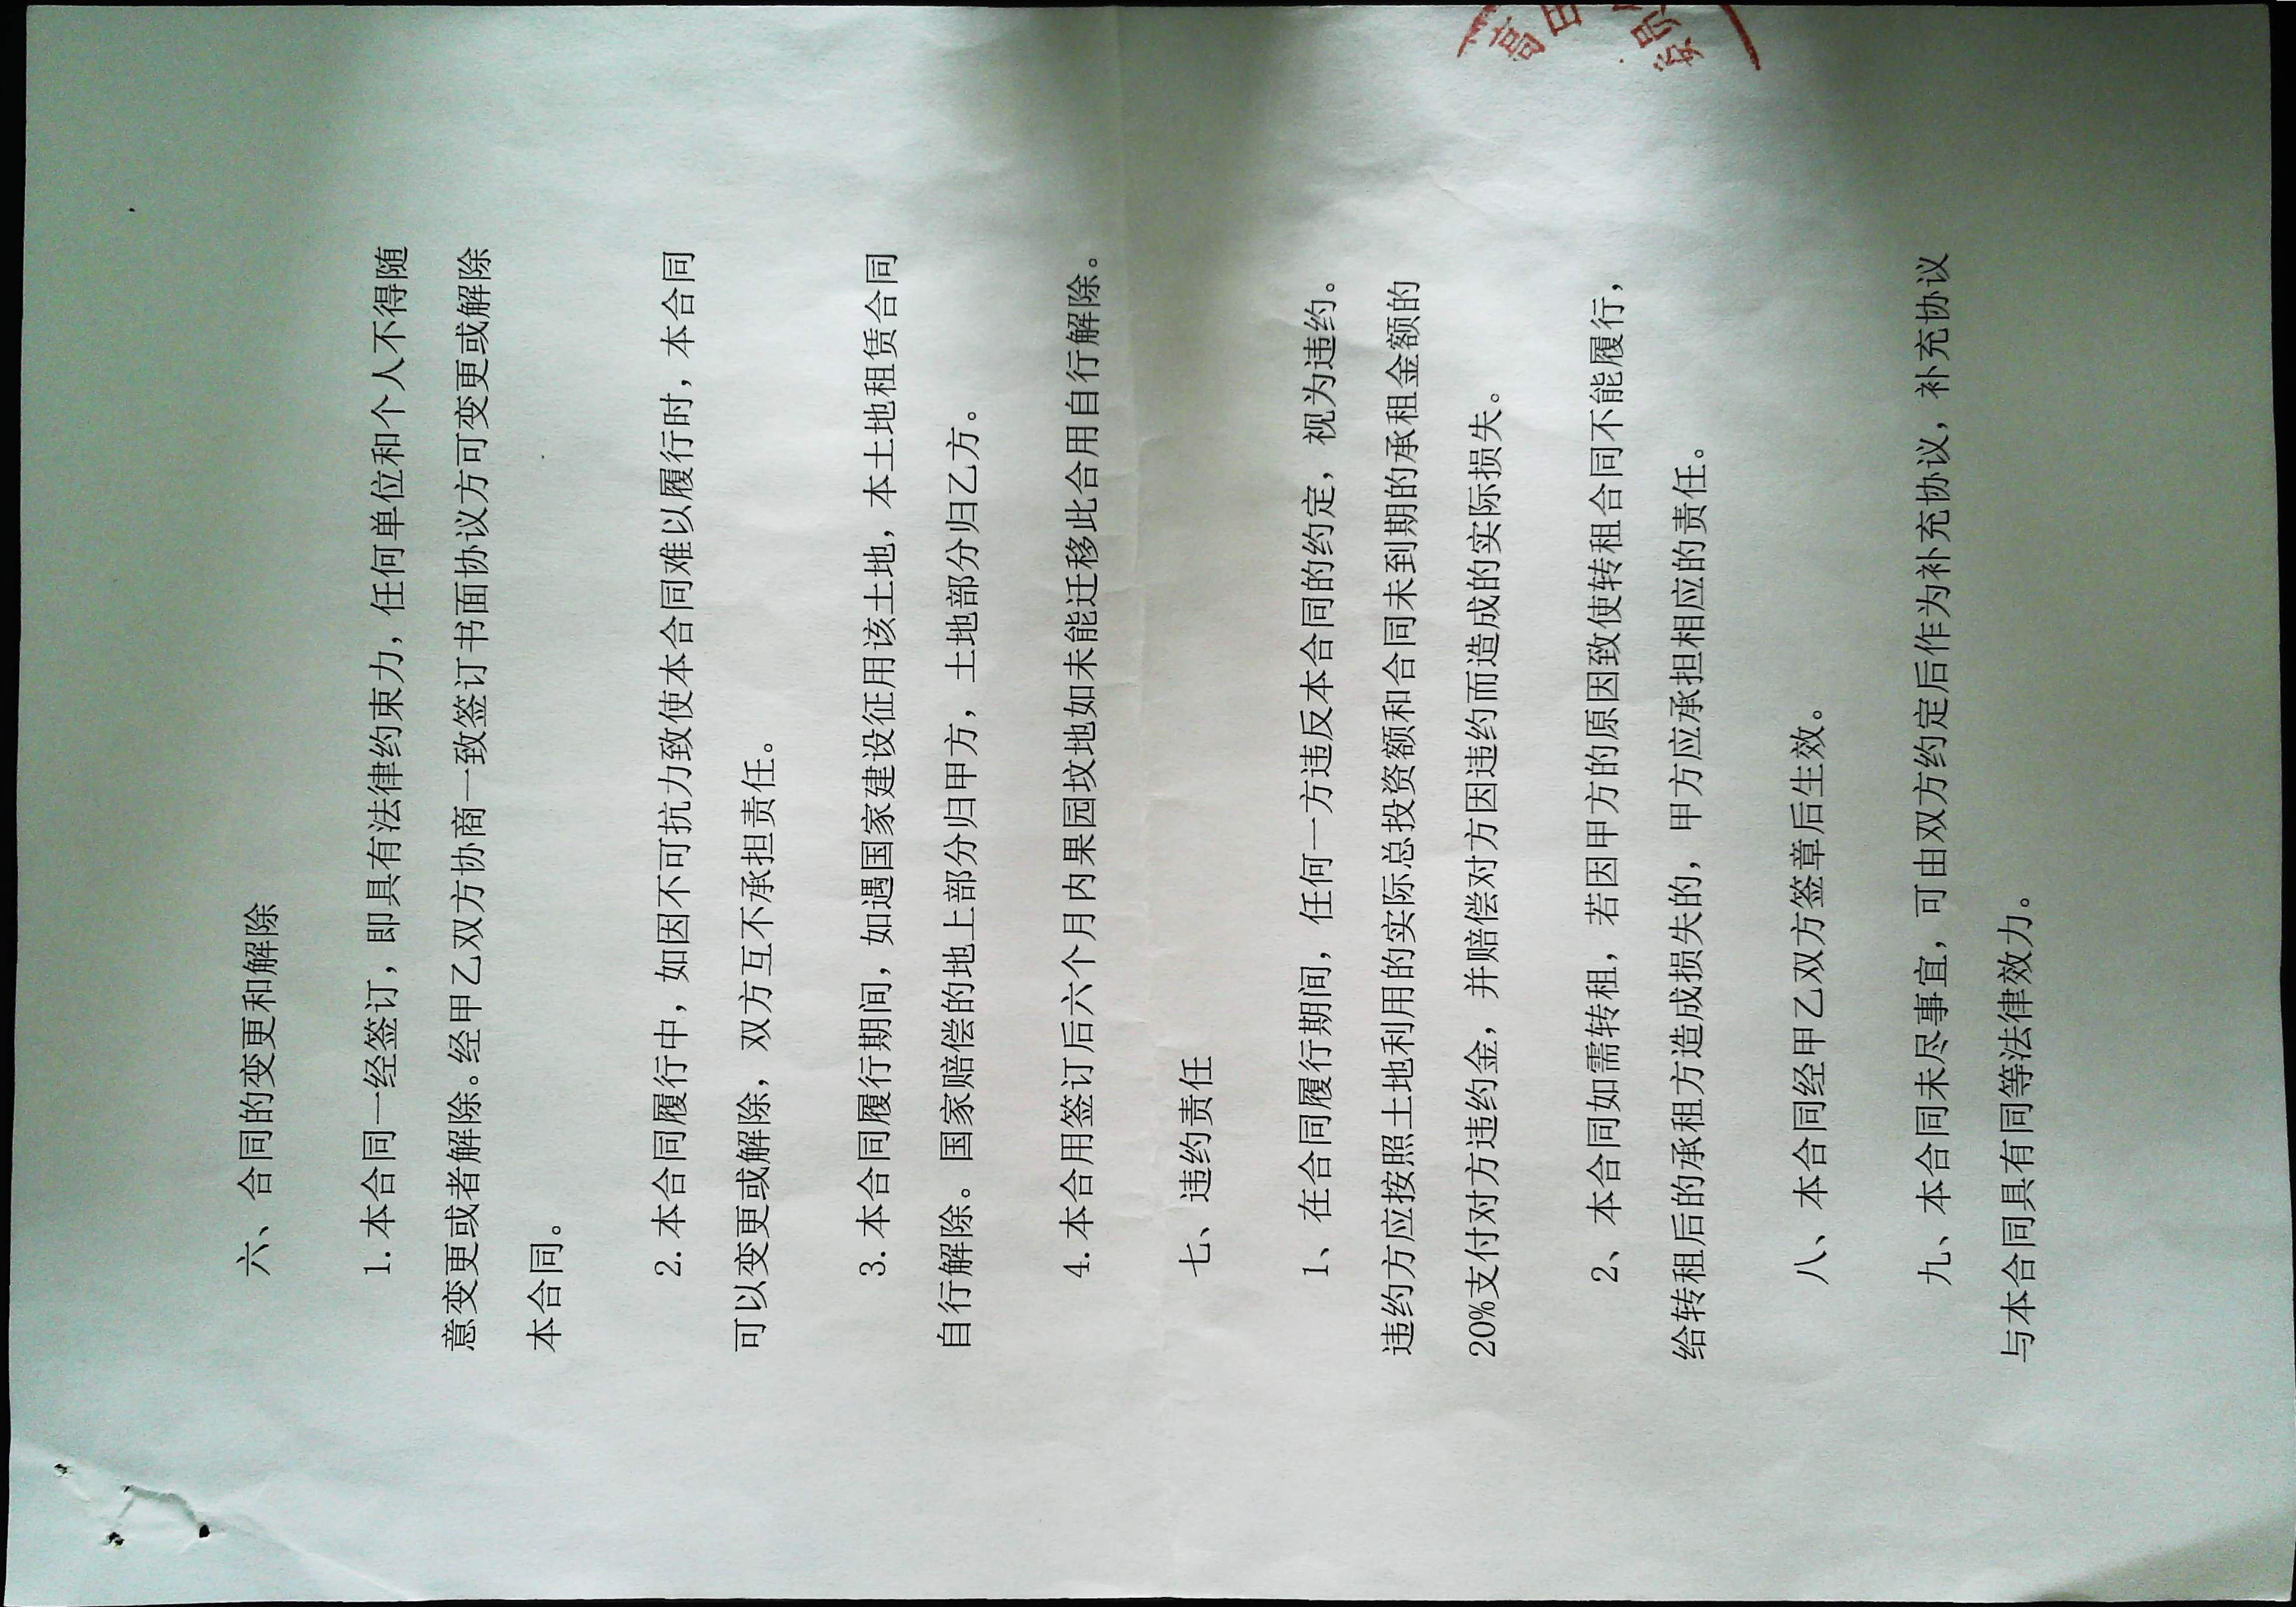 六、合同的变更和解除
1.本合同一经签订，即具有法律约束力，任何单位和个人不得随
意变更或者解除。经甲乙双方协商一致签订书面协议方可变更或解除
本合同。
2.本合同履行中，如因不可抗力致使本合同难以履行时，本合同
可以变更或解除，双方互不承担责任。
3.本合同履行期间，如遇国家建设征用该土地，本土地租赁合同
自行解除。国家赔偿的地上部分归甲方，土地部分归乙方。
4.本合用签订后六个月内果园坟地如未能迁移此合用自行解除。
七、违约责任
1、在合同履行期间，任何一方违反本合同的约定，视为违约。
违约方应按照土地利用的实际总投资额和合同未到期的承租金额的
20%支付对方违约金，并赔偿对方因违约而造成的实际损失。
2、本合同如需转租，若因甲方的原因致使转租合同不能履行，
给转租后的承租方造成损失的，甲方应承担相应的责任。
八、本合同经甲乙双方签章后生效。
九、本合同未尽事宜，可由双方约定后作为补充协议，补充协议
与本合同具有同等法律效力。
高